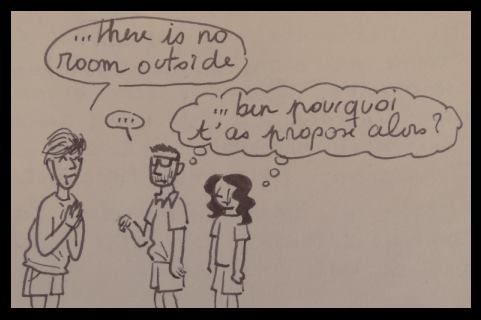 ...there is no
room outside
...
...ben pourquoi
t'as proposé alors?